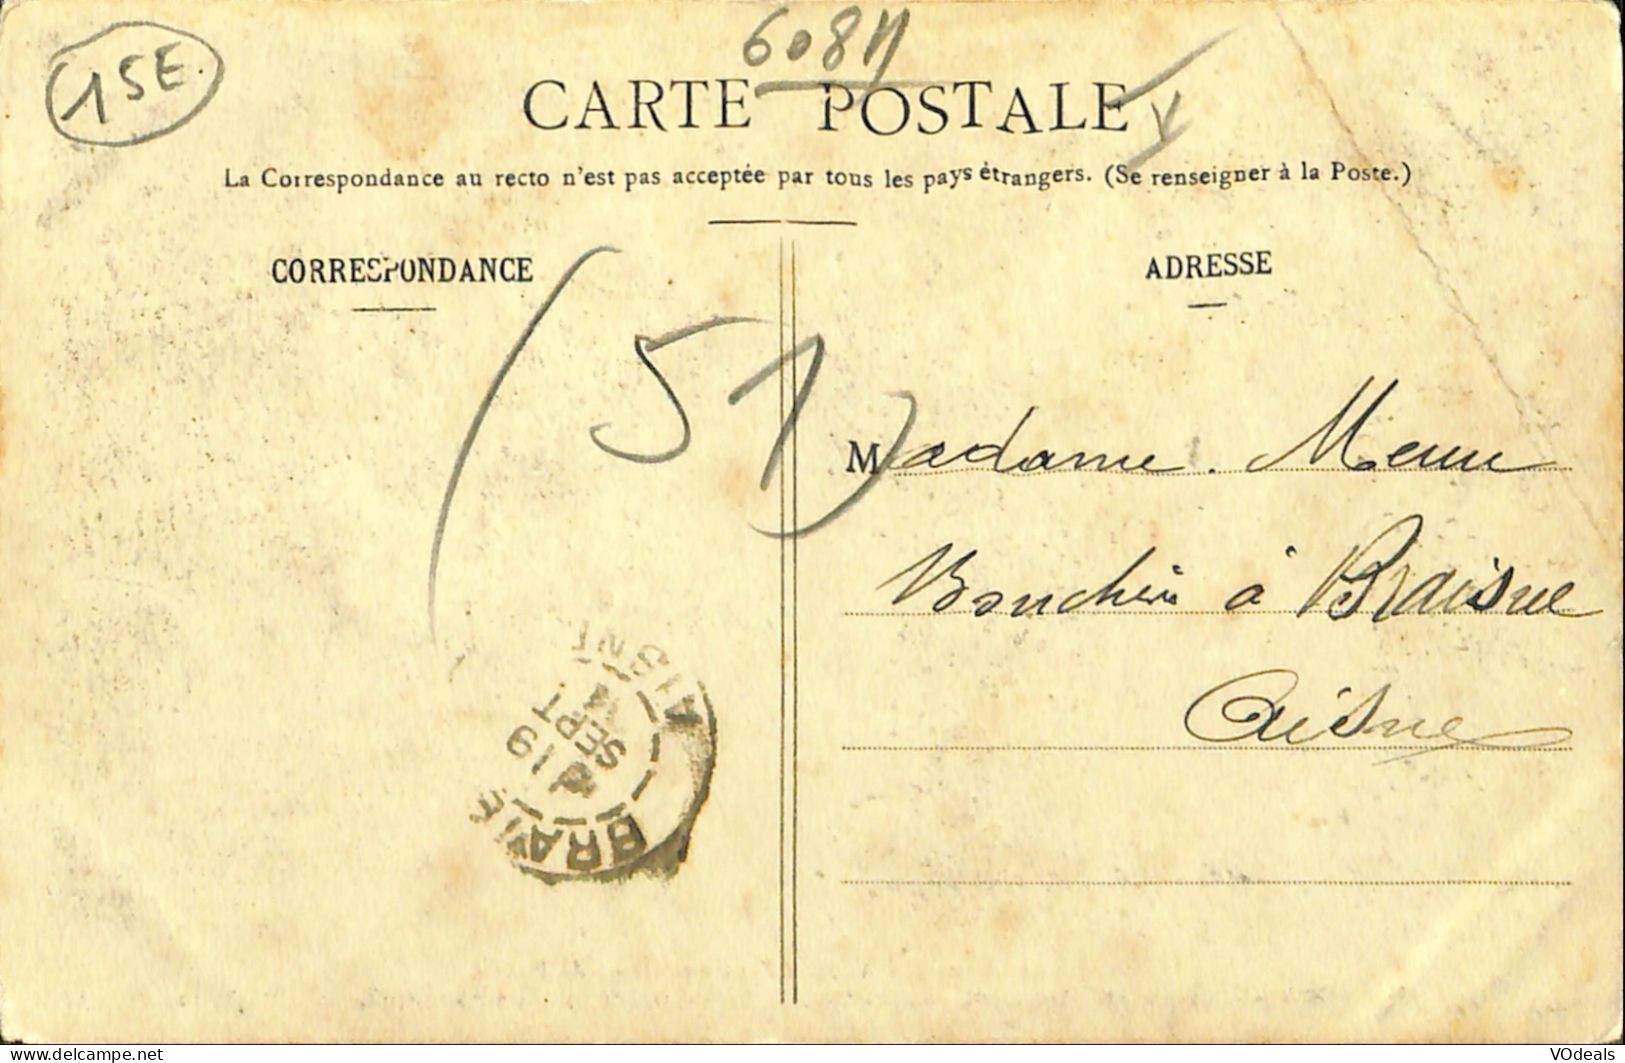 15E
608N
CARTE POSTALE
La Correspondance au recto n'est pas acceptée par tous les pays étrangers. (Se renseigner à la Poste.)
CORRESPONDANCE
ADRESSE
(51)
Madame. Menu
à Braisne
Aisne
SEPT
19
VOdeals